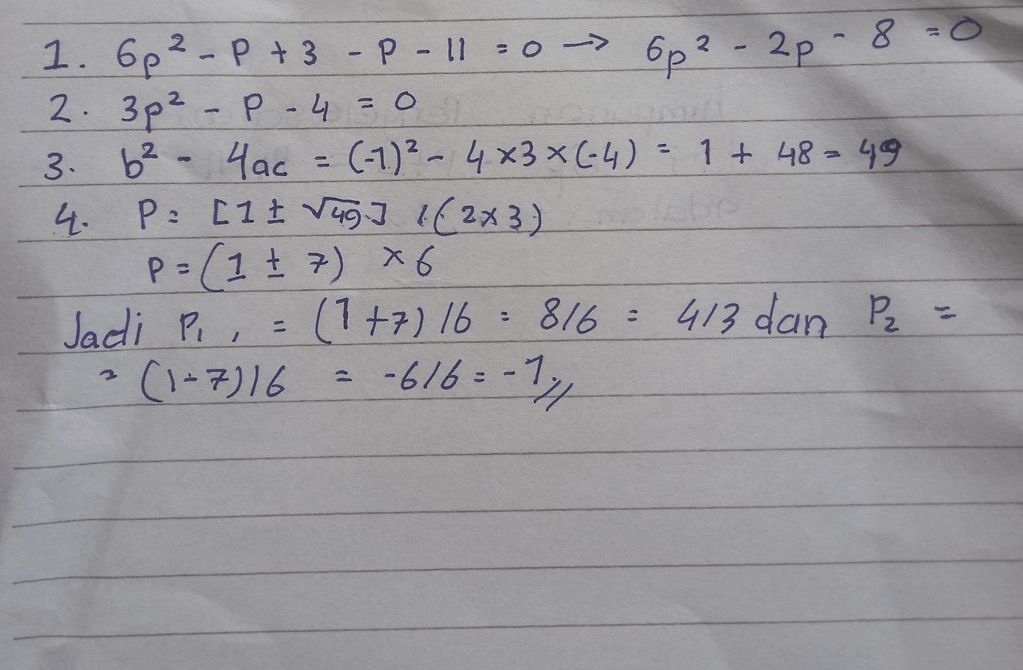 1. 6p² - p + 3 - p - 11 = 0 → 6p² - 2p - 8 = 0
2. 3p² - p - 4 = 0
3. b² - 4ac = (-1)² - 4 × 3 × (-4) = 1 + 48 = 49
4. P = [1 ± √49] / (2×3)
P = (1 ± 7) × 6
Jadi P₁, = (1+7)/6 = 8/6 = 4/3 dan P₂ =
= (1-7)/6 = -6/6 = -1,//